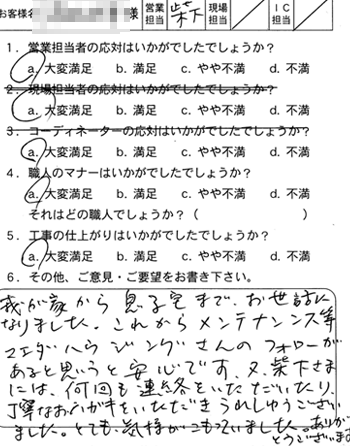 お客様名 様 営業担当 柴下 現場担当 ＩＣ担当
１．営業担当者の応対はいかがでしたでしょうか？
a. 大変満足 b. 満足 c. やや不満 d. 不満
２．現場担当者の応対はいかがでしたでしょうか？
a. 大変満足 b. 満足 c. やや不満 d. 不満
３．コーディネーターの応対はいかがでしたでしょうか？
a. 大変満足 b. 満足 c. やや不満 d. 不満
４．職人のマナーはいかがでしたでしょうか？
a. 大変満足 b. 満足 c. やや不満 d. 不満
それはどの職人でしょうか？（ ）
５．工事の仕上がりはいかがでしたでしょうか？
a. 大変満足 b. 満足 c. やや不満 d. 不満
６．その他、ご意見・ご要望をお書き下さい。
我が家から息子宅まで、お世話に
なりました。これからメンテナンス等
マエダハウジングさんのフォローが
あると思うと安心です。又、柴下さま
には、何回も連絡をいただいたり、
丁寧なおハガキをいただきうれしゅうござい
ました。とても気持がこもっていました。ありが
とうございます